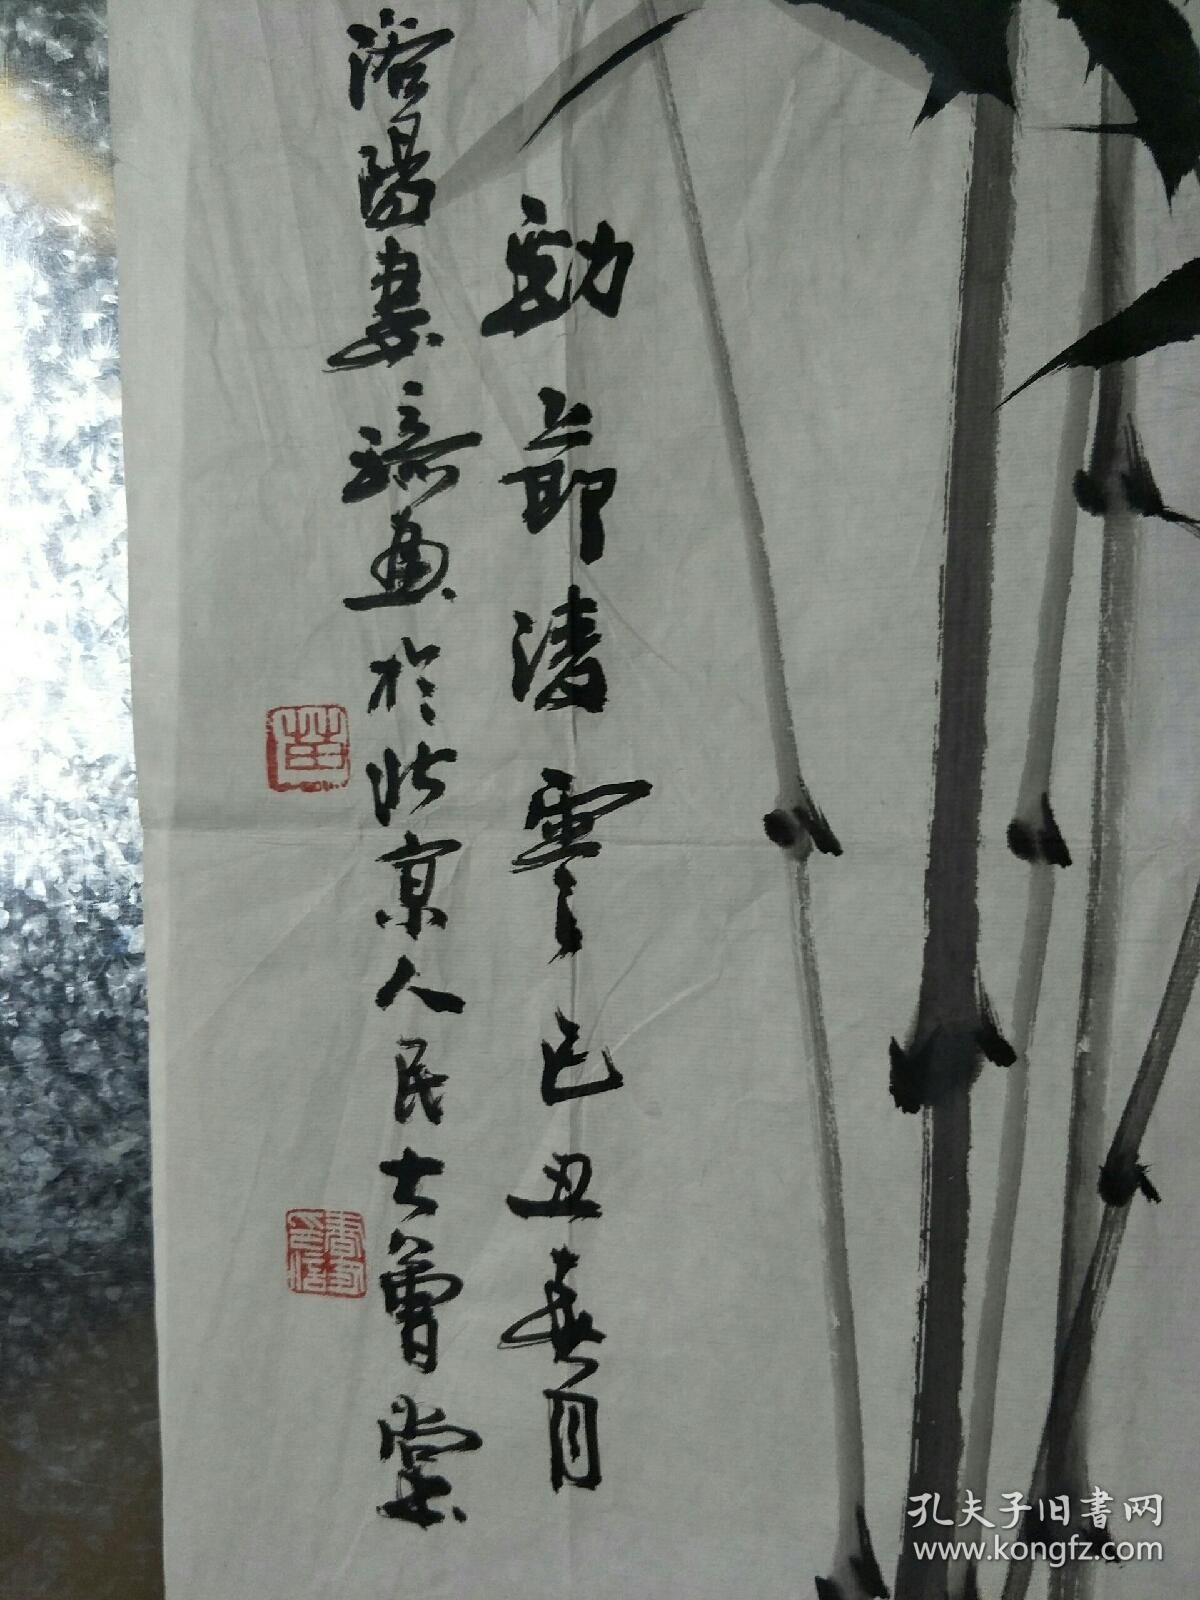 劲节凌雲己丑春月
洛陽妻琦画於北京人民大會堂
苗
孔夫子旧書网
www.kongfz.com